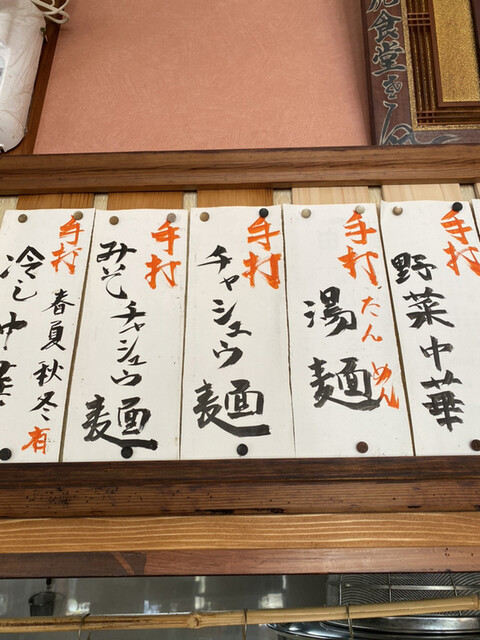 手打
野菜中華
手打
湯麺
たんめん
手打
チャシュウ麺
手打
みそチャシュウ麺
手打
冷し中華
春夏秋冬有
食堂